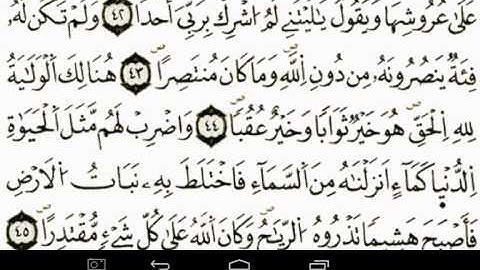 عَلٰى عُرُوشِهَا وَيَقُولُ يَالَيْتَنٖى لَمْ اُشْرِكْ بِرَبّٖى اَحَدًا ﴿٤٢﴾ وَلَمْ تَكُنْ لَهُ
فِئَةٌ يَنْصُرُونَهُ مِنْ دُونِ اللّٰهِ وَمَا كَانَ مُنْتَصِرًا ﴿٤٣﴾ هُنَالِكَ الْوَلَايَةُ
لِلّٰهِ الْحَقِّ هُوَ خَيْرٌ ثَوَابًا وَخَيْرٌ عُقْبًا ﴿٤٤﴾ وَاضْرِبْ لَهُمْ مَثَلَ الْحَيٰوةِ
الدُّنْيَا كَمَاءٍ اَنْزَلْنَاهُ مِنَ السَّمَاءِ فَاخْتَلَطَ بِهٖ نَبَاتُ الْاَرْضِ
فَاَصْبَحَ هَشٖيمًا تَذْرُوهُ الرِّيَاحُ وَكَانَ اللّٰهُ عَلٰى كُلِّ شَیْءٍ مُقْتَدِرًا ﴿٤٥﴾